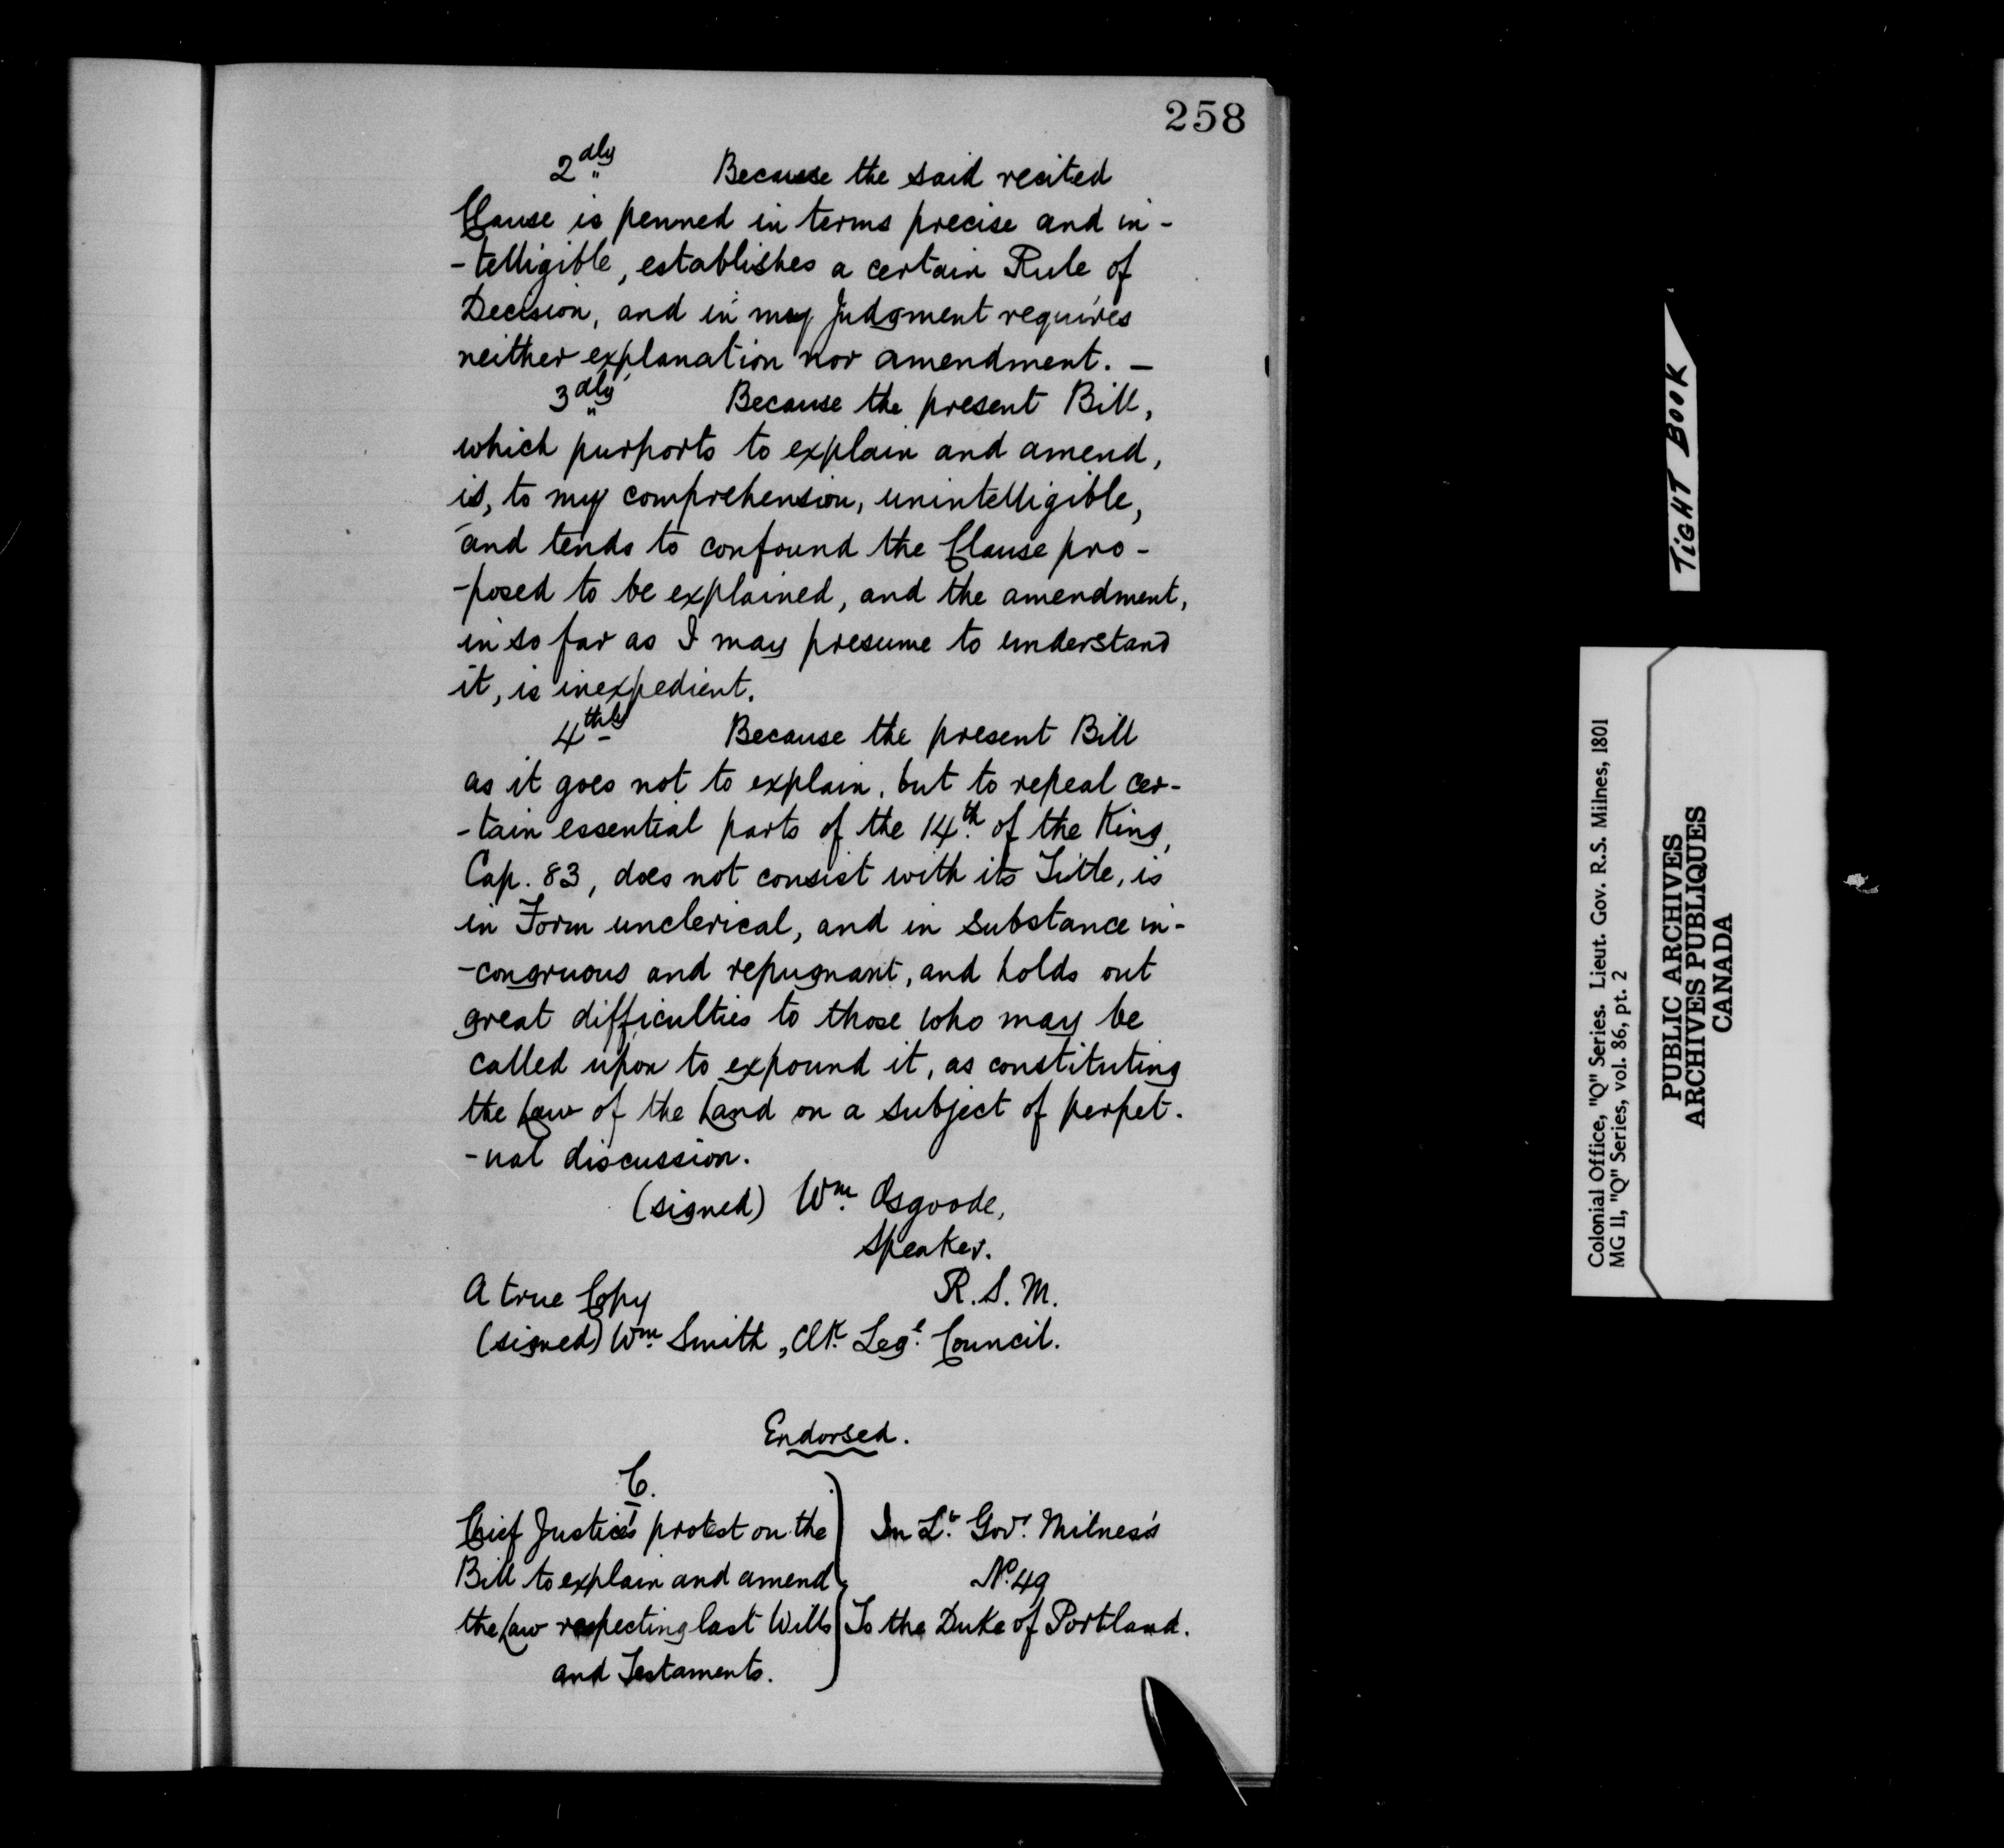 258
2dly Because the said recited
Clause is penned in terms precise and in-
-telligible, establishes a certain Rule of
Decision, and in my Judgment requires
neither explanation nor amendment. —
3dly Because the present Bill,
which purports to explain and amend,
is, to my comprehension, unintelligible,
and tends to confound the Clause pro-
-posed to be explained, and the amendment,
in so far as I may presume to understand
it, is inexpedient.
4thly Because the present Bill
as it goes not to explain, but to repeal cer-
-tain essential parts of the 14th. of the King,
Cap. 83, does not consist with its Title, is
in Form unclerical, and in substance in-
-congruous and repugnant, and holds out
great difficulties to those who may be
called upon to expound it, as constituting
the Law of the Land on a subject of perpet-
-ual discussion.
(signed) Wm. Osgoode,
Speaker.
R. S. M.
A true Copy
(signed) Wm. Smith, Clk. Legl. Council.
Endorsed.
C.
Chief Justice's protest on the
Bill to explain and amend
the Law respecting last Wills
and Testaments.
In Lt. Govr. Milnes's
No. 49
To the Duke of Portland.
TIGHT BOOK
Colonial Office, "Q" Series. Lieut. Gov. R.S. Milnes, 1801
MG 11, "Q" Series, vol. 86, pt. 2
PUBLIC ARCHIVES
ARCHIVES PUBLIQUES
CANADA